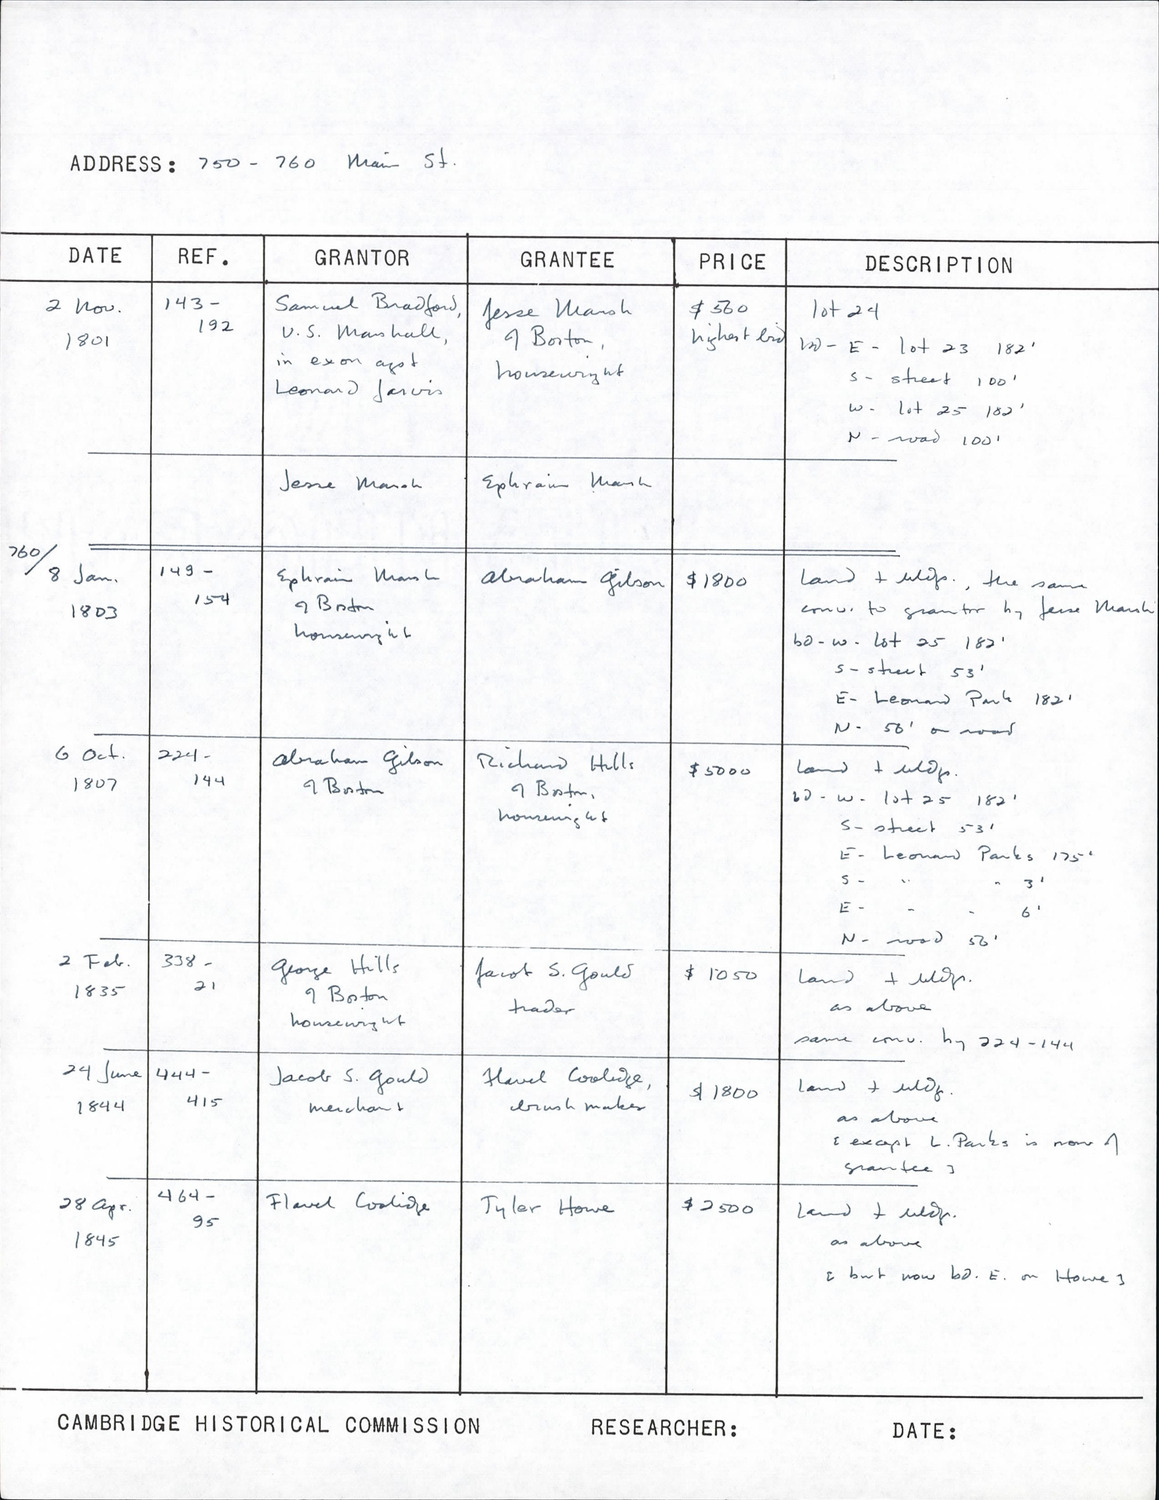 ADDRESS: 750 - 760 Main St.
DATE REF. GRANTOR GRANTEE PRICE DESCRIPTION
2 Nov.
1801
143 -
192
Samuel Bradford,
U.S. Marshall,
in exon agst
Leonard Jarvis
Jesse Marsh
of Boston,
housewright
$ 560
highest bid
lot 24
bd - E - lot 23 182'
S - street 100'
W - lot 25 182'
N - road 100'
Jesse Marsh
Ephraim Marsh
760/
8 Jan.
1803
149 -
154
Ephraim Marsh
of Boston
housewright
Abraham Gilson
$ 1800
Land + bldgs., the same
conv. to grantor by Jesse Marsh
bd - W - lot 25 182'
S - street 53'
E - Leonard Park 182'
N - 56' on road
6 Oct.
1807
224 -
144
Abraham Gilson
of Boston
Richard Hills
of Boston,
housewright
$ 5000
Land + bldgs.
bd - W - lot 25 182'
S - street 53'
E - Leonard Parks 175'
S - " " 3'
E - " " 6'
N - road 56'
2 Feb.
1835
338 -
21
George Hills
of Boston
housewright
Jacob S. Gould
trader
$ 1050
Land + bldgs.
as above
same conv. by 224-144
24 June
1844
444 -
415
Jacob S. Gould
merchant
Flavel Coolidge,
brush maker
$ 1800
Land + bldgs.
as above
[ except L. Parks is now of
grantee ]
28 Apr.
1845
464 -
95
Flavel Coolidge
Tyler Howe
$ 2500
Land + bldgs.
as above
[ but now bd. E. on Howe ]
CAMBRIDGE HISTORICAL COMMISSION RESEARCHER: DATE: